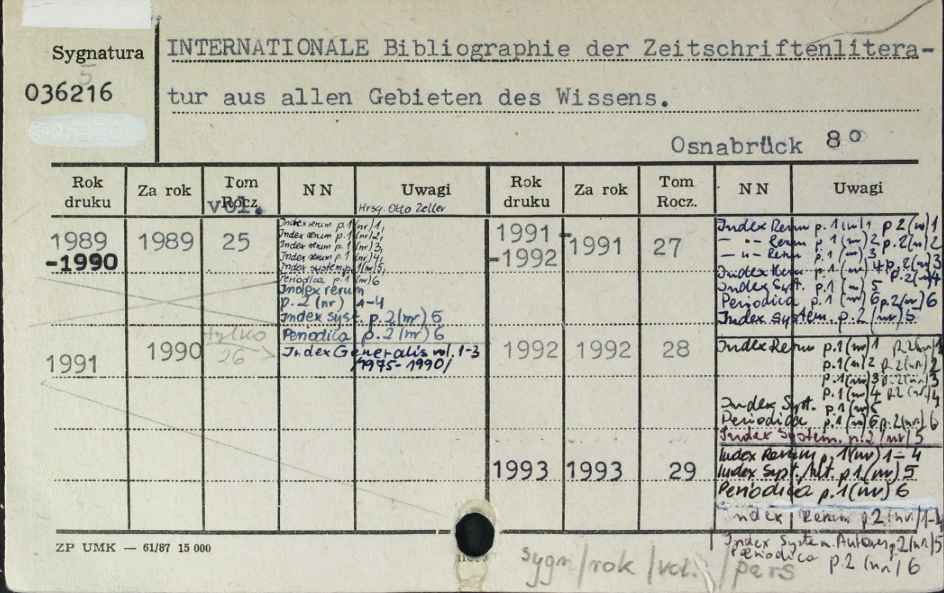 Sygnatura
5
036216
INTERNATIONALE Bibliographie der Zeitschriftenlitera-
tur aus allen Gebieten des Wissens.
Osnabrück 8°
Rok druku Za rok Tom Rocz. vol. N N Uwagi
Hrsg. Otto Zeller
1989 -1990 1989 25
Index rerum p.1 (nr) 1
Index rerum p.1 (nr) 2
Index rerum p.1 (nr) 3
Index rerum p.1 (nr) 4
Index system p.1 (nr) 5
Periodica p.1 (nr) 6
Index rerum
p.2 (nr) 1-4
Index syst. p.2 (nr) 5
Periodica p.2 (nr) 6
1991 1990 tylko 26
Index Generalis vol. 1-3
/1975-1990/
Rok druku Za rok Tom Rocz. N N Uwagi
1991 -1992 -1991 27
Index Rerum p.1 (nr) 1 p.2 (nr) 1
— " — Rerum p.1 (nr) 2 p.2 (nr) 2
— " — Rerum p.1 (nr) 3 p.2 (nr) 3
Index Rerum p.1 (nr) 4 p.2 (nr) 4
Index Syst. p.1 (—) 5
Periodica p.1 (nr) 6 p.2 (nr) 6
Index system. p.2 (nr) 5
1992 1992 28
Index Rerum p.1 (nr) 1 p.2 (nr) 1
p.1 (nr) 2 p.2 (nr) 2
p.1 (nr) 3 p.2 (nr) 3
p.1 (nr) 4 p.2 (nr) 4
Index Syst. p.1 (nr) 5
Periodica p.1 (nr) 6 p.2 (nr) 6
Index System. p.2 (nr) 5
1993 1993 29
Index Rerum p.1 (nr) 1-4
Index Syst. p.1 (nr) 5
Periodica p.1 (nr) 6
Index Rerum p.2 (nr) 1-4
Index System. p.2 (nr) 5
Periodica p.2 (nr) 6
ZP UMK — 61/87 15 000
sygn/rok/vol./pars